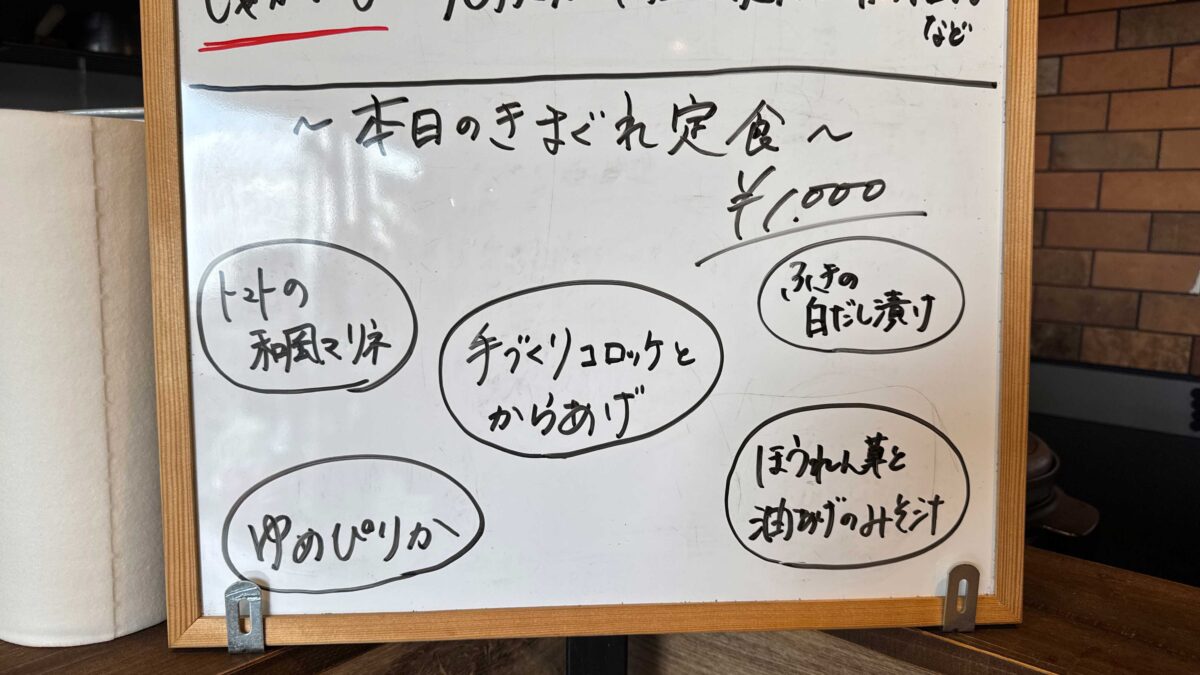 など
～本日のきまぐれ定食～
¥1.000
トマトの
和風マリネ
手づくりコロッケと
からあげ
ふきの
白だし漬け
ゆめぴりか
ほうれん草と
油あげのみそ汁